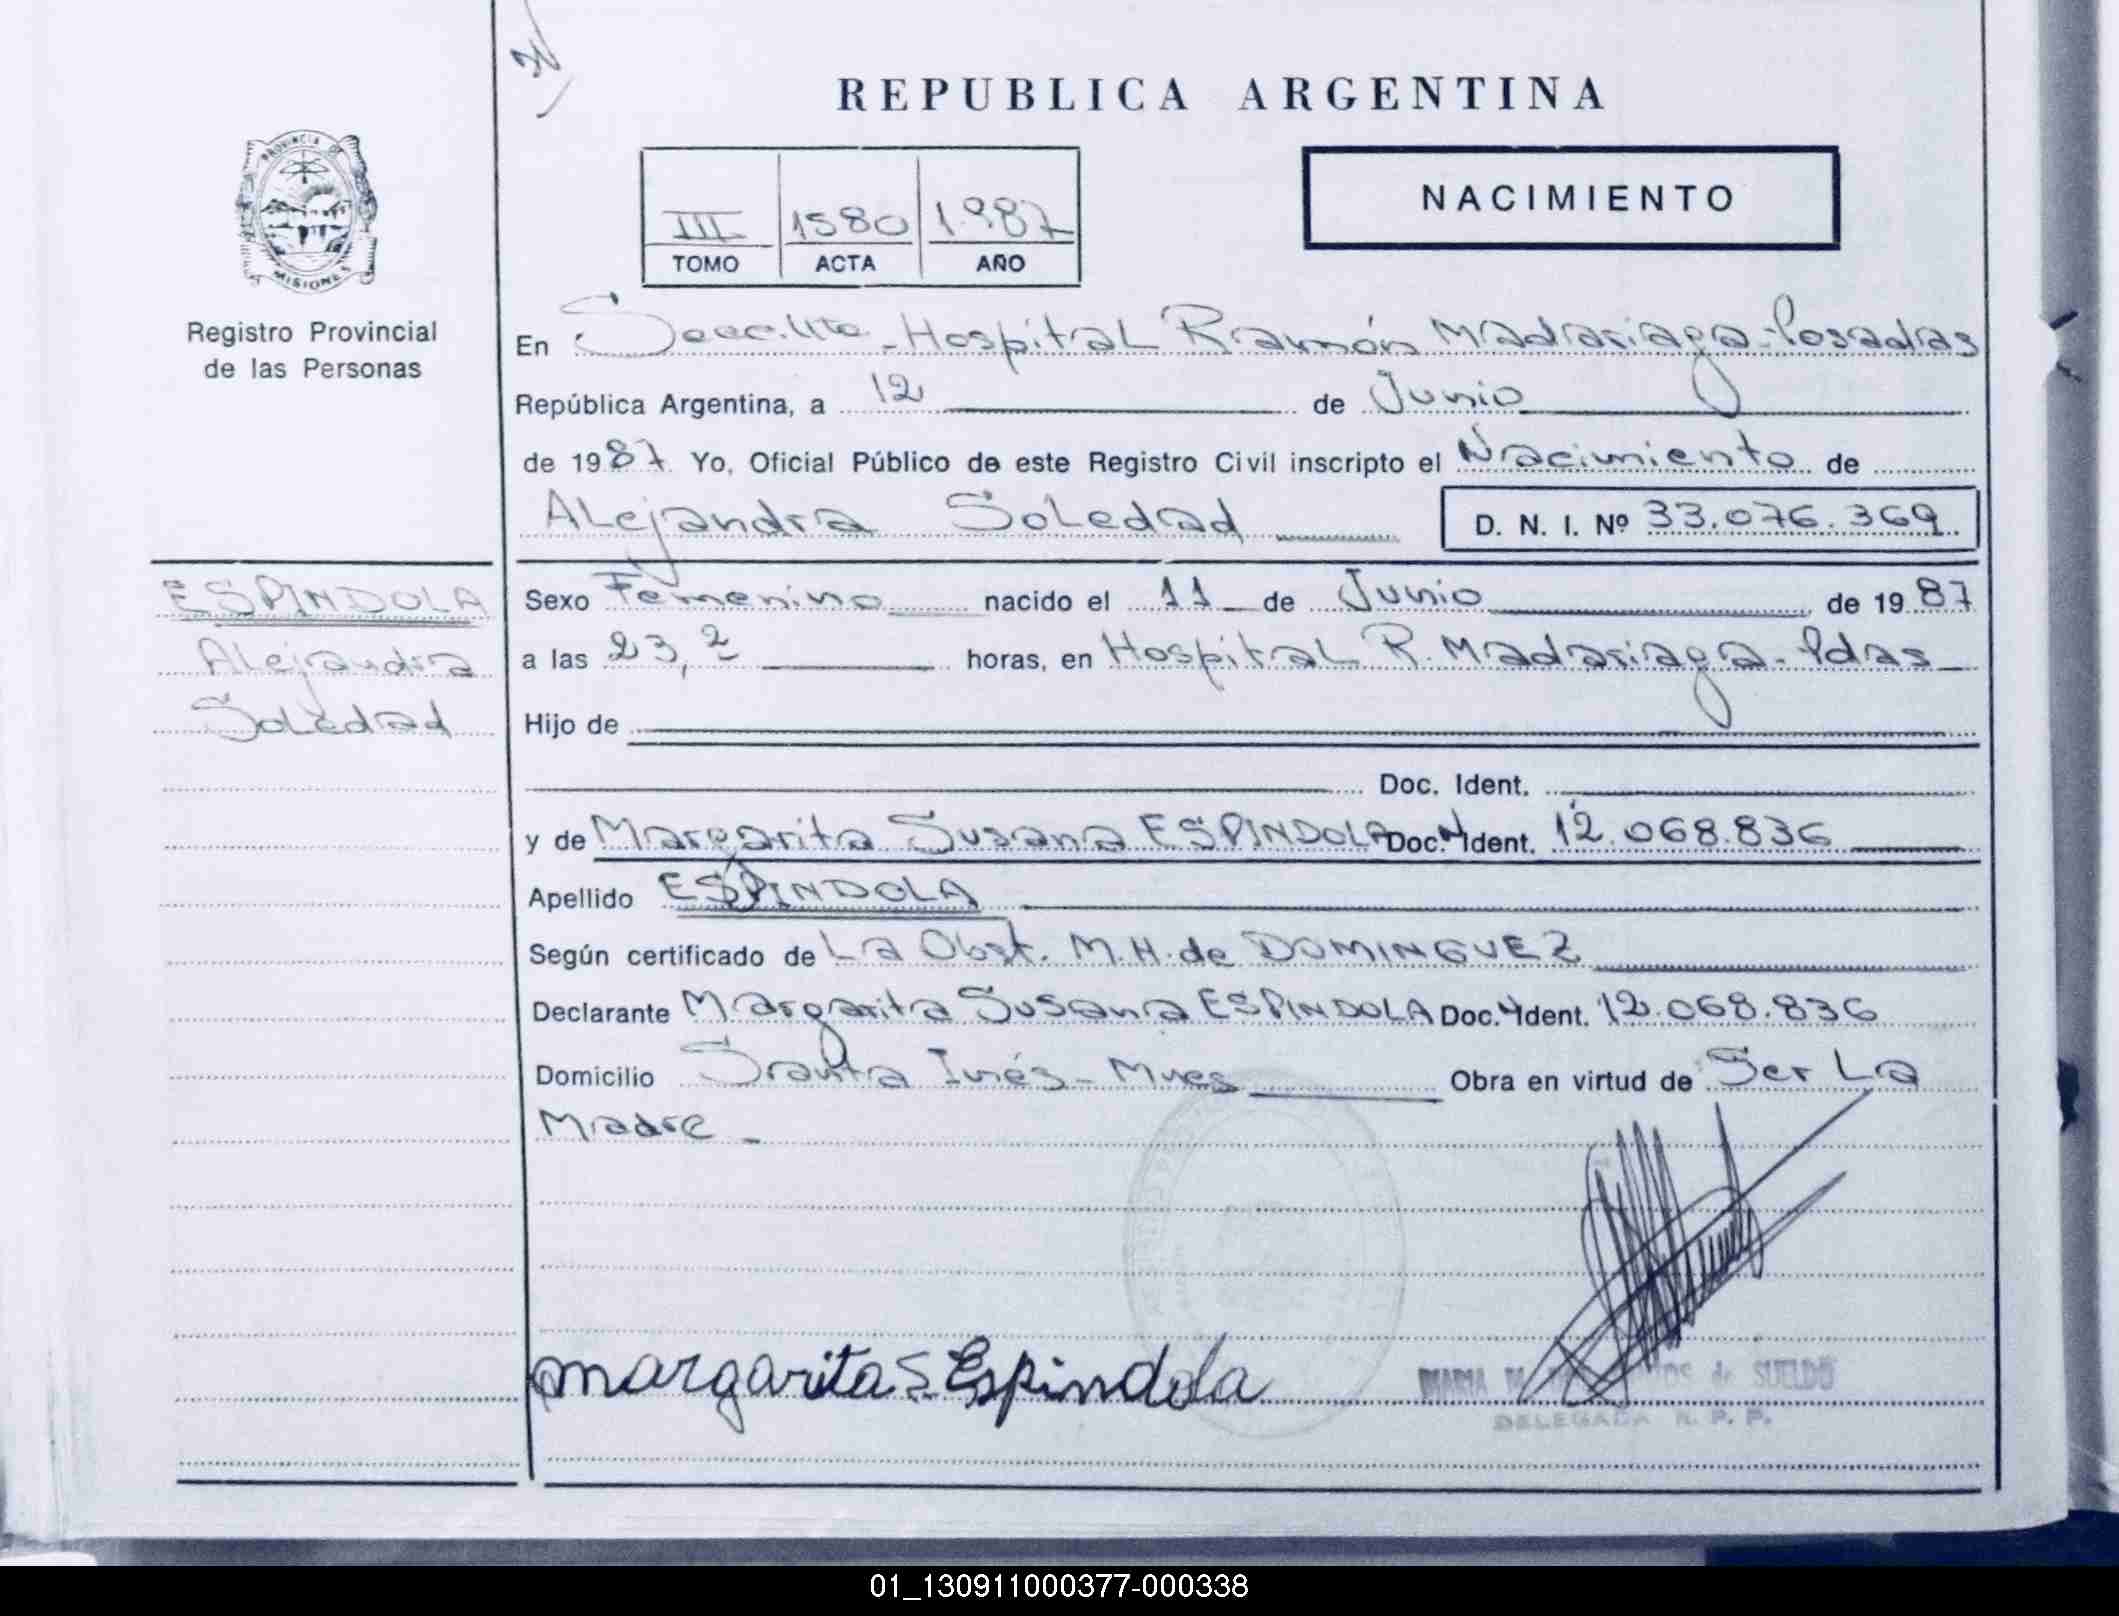 REPUBLICA ARGENTINA
PROVINCIA DE
MISIONES
Registro Provincial
de las Personas
III 1580 1987
TOMO ACTA AÑO
NACIMIENTO
En Secc. Hospital Ramón Madariaga - Posadas
República Argentina, a 12 de Junio
de 1987 Yo, Oficial Público de este Registro Civil inscripto el Nacimiento de
Alejandra Soledad D. N. I. Nº 33.076.369
ESPINDOLA
Alejandra
Soledad
Sexo Femenino nacido el 11 de Junio de 1987
a las 23,2 horas, en Hospital R. Madariaga - Pdas
Hijo de
Doc. Ident.
y de Margarita Susana ESPINDOLA Doc. Ident. 12.068.836
Apellido ESPINDOLA
Según certificado de La Obst. M.H. de DOMINGUEZ
Declarante Margarita Susana ESPINDOLA Doc. Ident. 12.068.836
Domicilio Santa Inés - Mnes Obra en virtud de Ser La
Madre -
margarita S Espindola
MARIA de SUELDO
DELEGADA R. P. P.
01_130911000377-000338